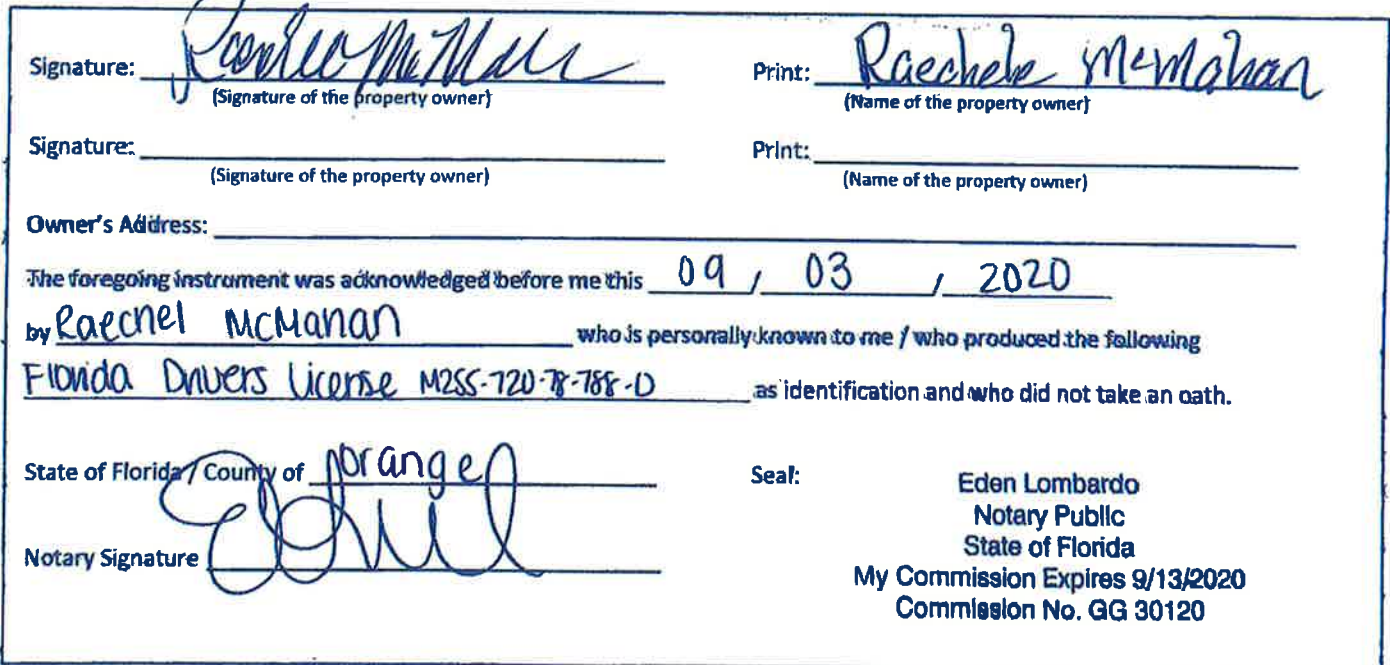 Signature: Print: Raechele McMahan
(Signature of the property owner) (Name of the property owner)
Signature: Print:
(Signature of the property owner) (Name of the property owner)
Owner's Address:
The foregoing instrument was acknowledged before me this 09 / 03 / 2020
by Raechel McMahan who is personally known to me / who produced the following
Florida Drivers License M255-720-78-788-0 as identification and who did not take an oath.
State of Florida / County of Orange Seal:
Notary Signature
Eden Lombardo
Notary Public
State of Florida
My Commission Expires 9/13/2020
Commission No. GG 30120